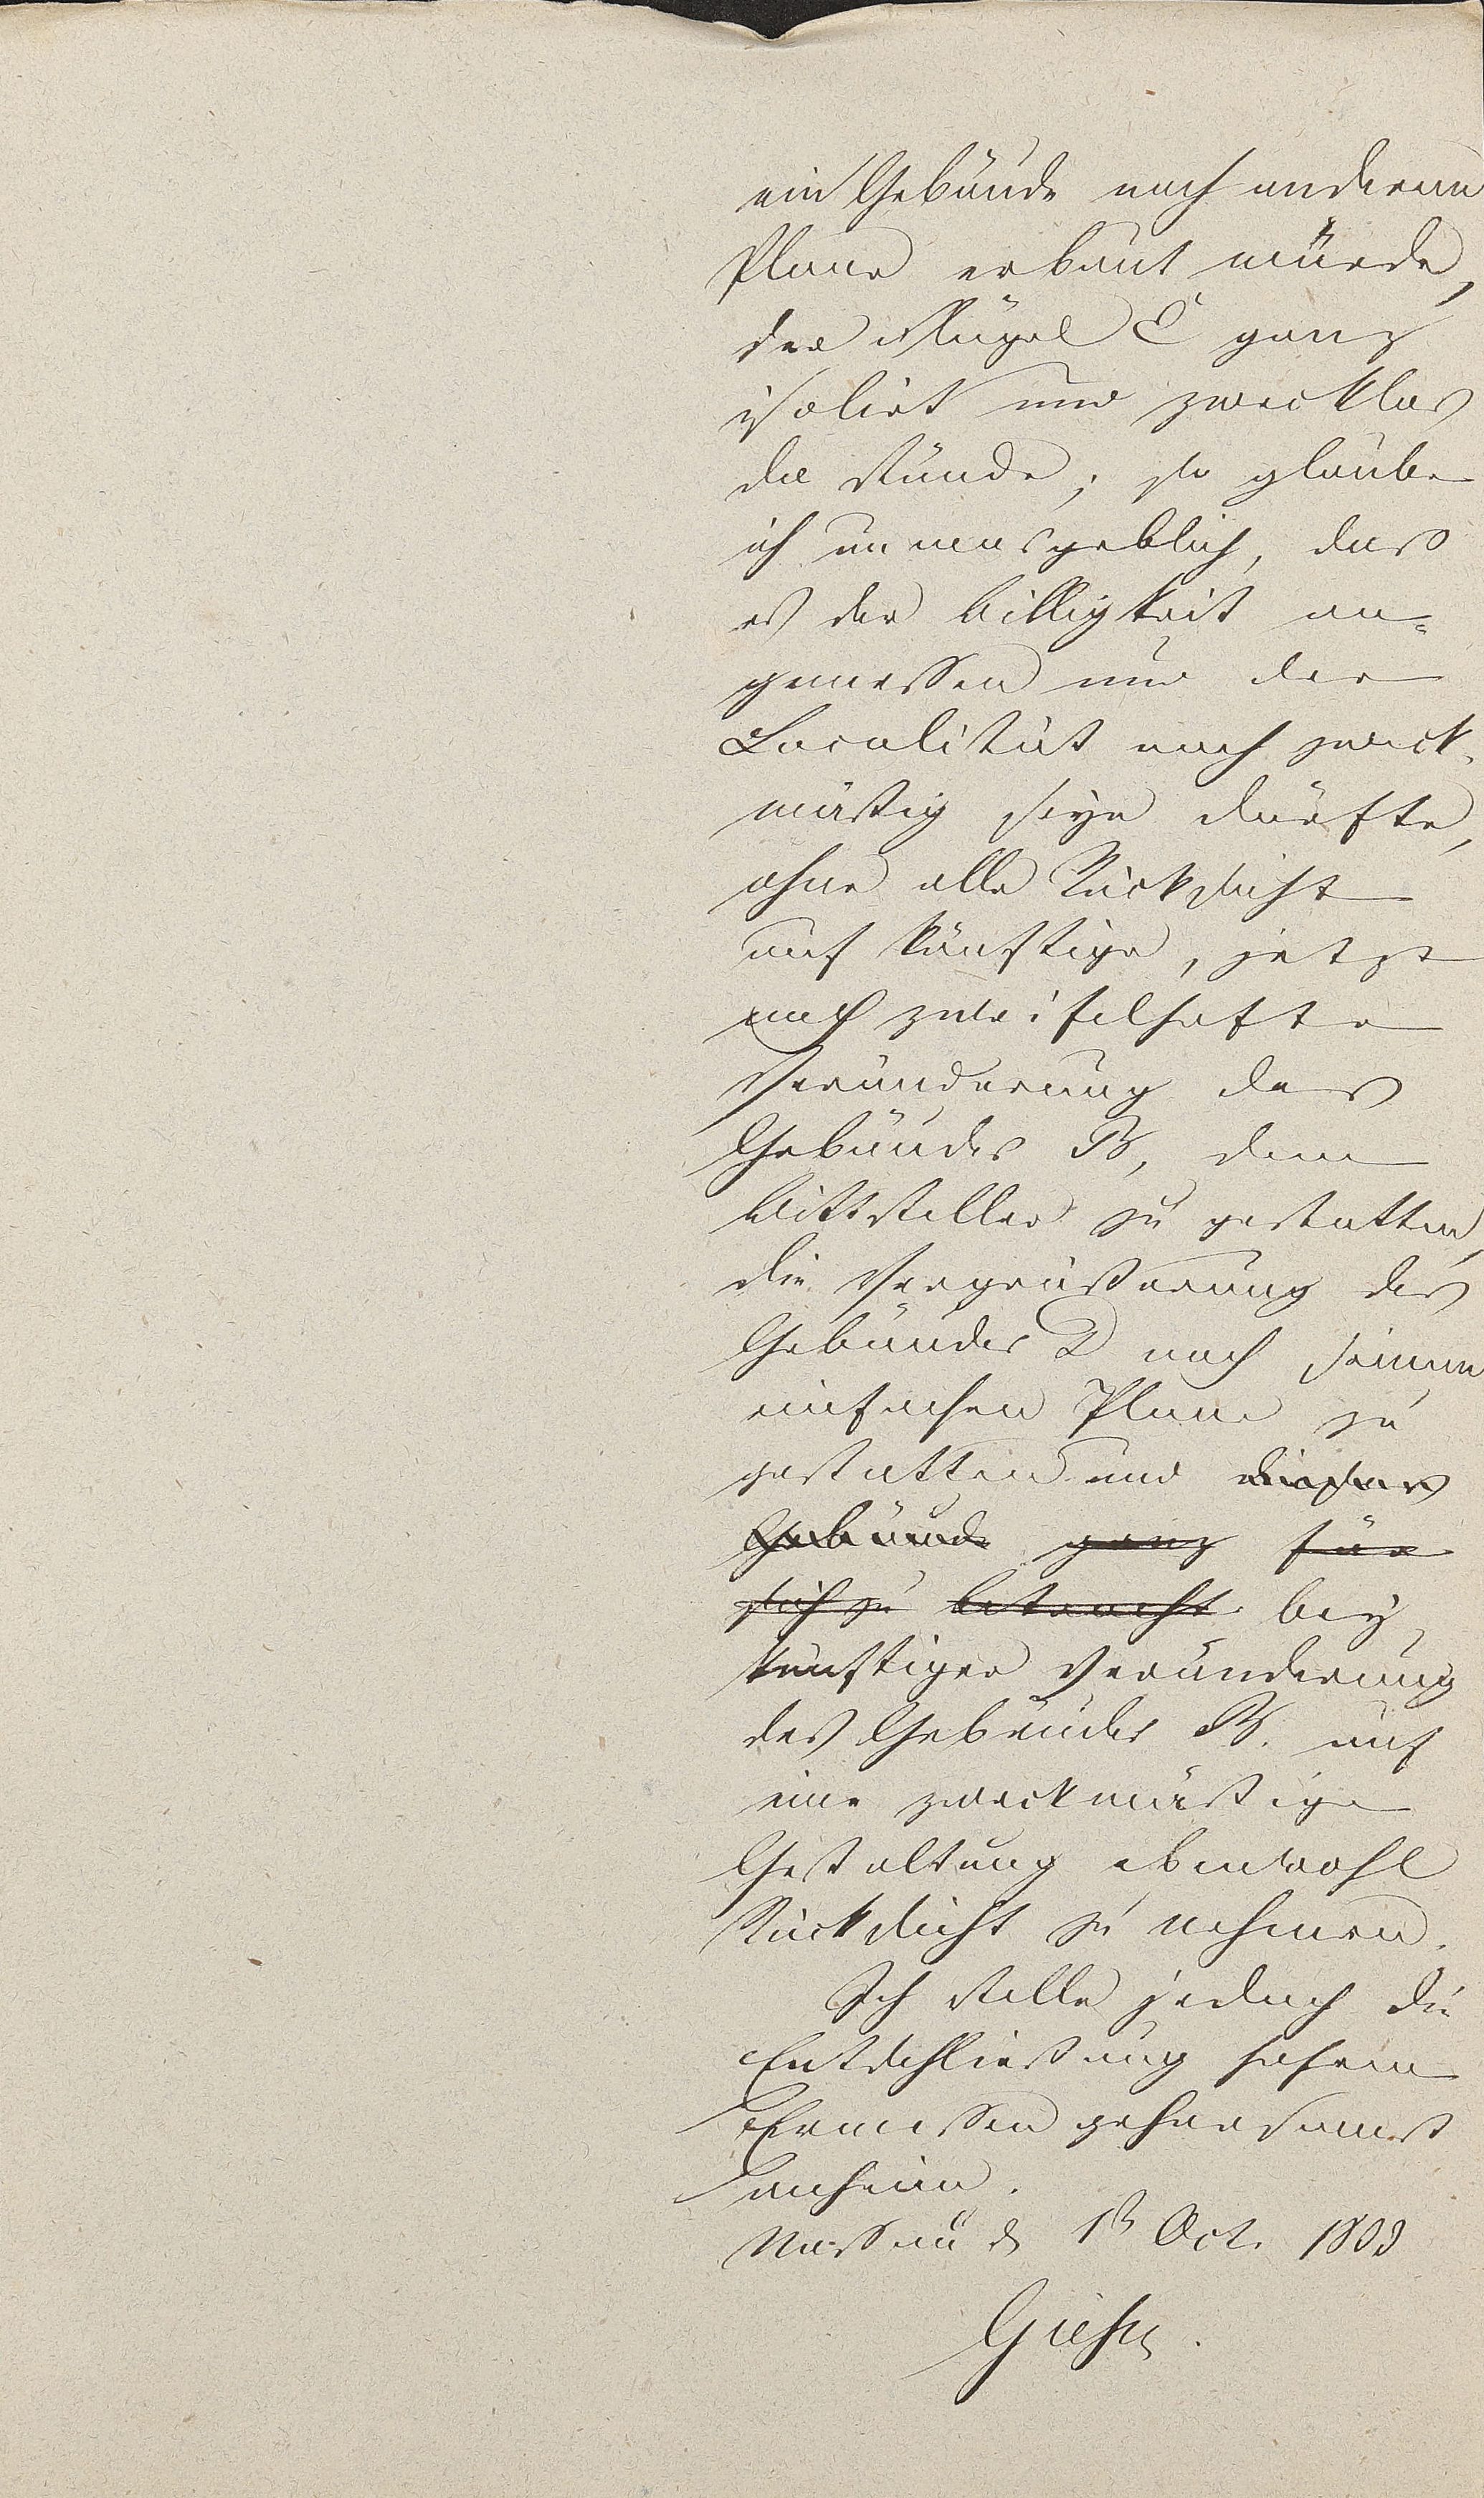 ein Gebäude nach anderem
Plane erbaut würde,
der Flügel C ganz
isolirt und zwecklos
da stünde; so glaube
ich unmasgeblich, daß
es der Billigkeit an-
gemessen und der
Localität nach zweck-
mäßig seyn dürfte,
ohne alle Rücksicht
auf künftige, jetzt
noch zweifelhafte
Veränderung des
Gebäudes B, dem
Bittsteller zu gestatten,
die Vergrößerung des
Gebäudes D nach seinem
einfachen Plane zu
gestatten und dieses
Gebäude ganz für
sich zu betracht. bey
künftiger Veränderung
des Gebäudes B. auf
eine zweckmäßige
Gestaltung ebenwohl
Rücksicht zu nehmen.
Ich stelle jedoch die
Entschließung hohem
Ermessen gehorsamst
anheim.
Nassau d 1t Oct.